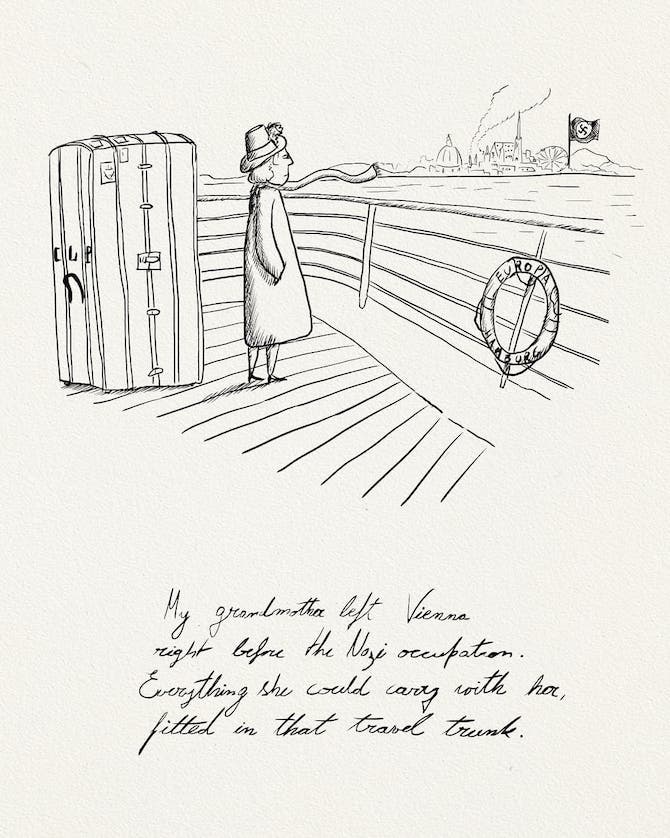 EUROPA
HAMBURG
My grandmother left Vienna
right before the Nazi occupation.
Everything she could carry with her,
fitted in that travel trunk.